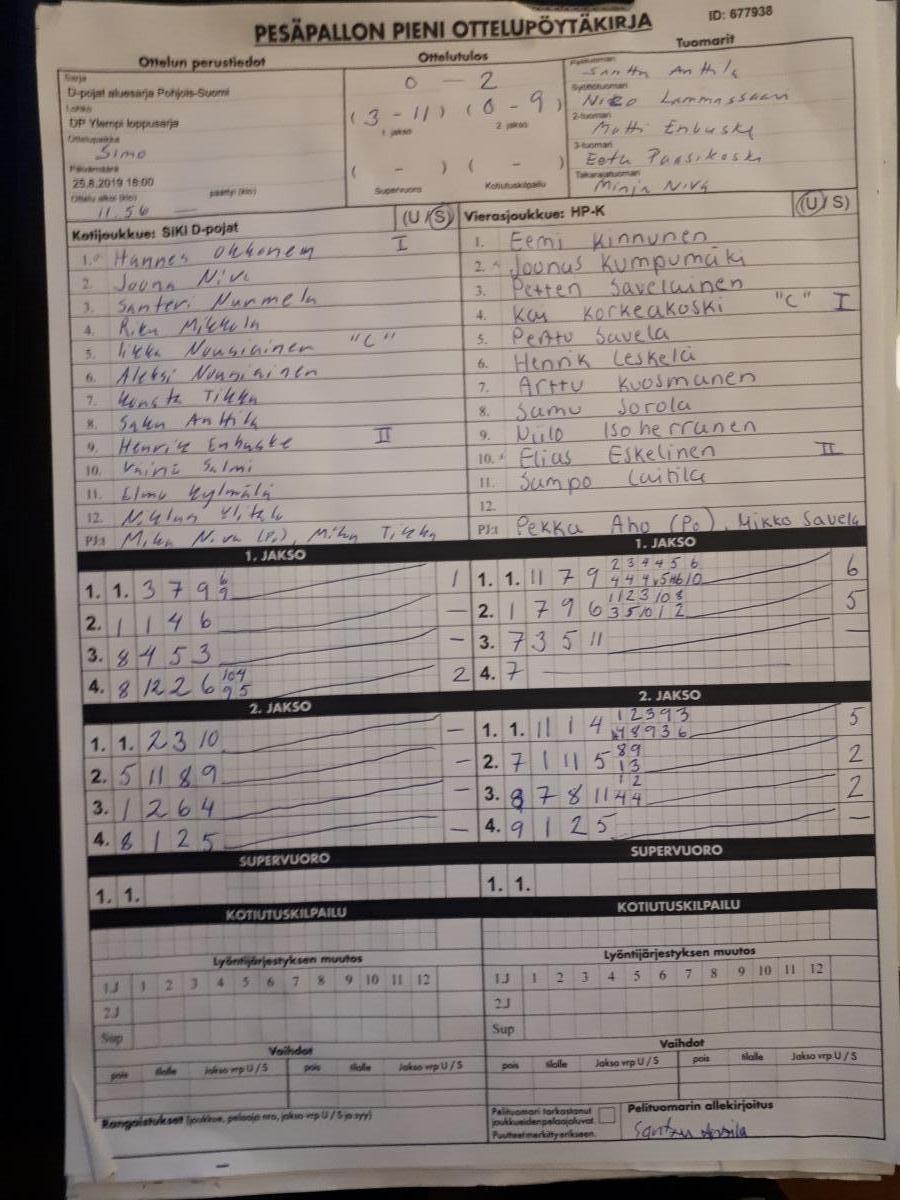 PESÄPALLON PIENI OTTELUPÖYTÄKIRJA
ID: 677938
Ottelun perustiedot
Ottelutulos
Tuomarit
Sarja
D-pojat aluesarja Pohjois-Suomi
Lohko
DP Ylempi loppusarja
Ottelupaikka
Simo
Päivämäärä
25.8.2019 16:00
Ottelu alkoi (klo) päättyi (klo)
11.56 —
0 - 2
(3 - 11) (0 - 9)
1. jakso 2. jakso
( - ) ( - )
Supervuoro Kotiutuskilpailu
Pelituomari
Santtu Anttila
Syöttötuomari
Nico Lammassaari
2-tuomari
Matti Enbuske
3-tuomari
Eetu Paasikoski
Takarajatuomari
Minja Niva
Kotijoukkue: SiKi D-pojat (U / S)
1. Hannes Okkonen I
2. Joona Niva
3. Santeri Nurmela
4. Riku Mikkola
5. Iikka Nousiainen "C"
6. Aleksi Nousiainen
7. Konsta Tikka
8. Saku Anttila
9. Henrik Enbuske II
10. Väinö Salmi
11. Elmo Kylmälä
12. Niklas
PJ:t Mika Niva (Po), Mika Tikka
Vierasjoukkue: HP-K (U / S)
1. Eemi Kinnunen
2. Joonas Kumpumäki
3. Petteri Savelainen
4. Kai Korkeakoski "C" I
5. Perttu Savela
6. Henrik Leskelä
7. Arttu Kuosmanen
8. Samu Sorola
9. Niilo Isoherranen
10. Elias Eskelinen II
11. Sampo Laitila
12.
PJ:t Pekka Aho (Po), Mikko Savela
1. JAKSO
1. 1. 3 7 9 6 9 1
2. 1 1 4 6 —
3. 8 4 5 3 —
4. 8 12 2 6 10 4 9 5 2
1. JAKSO
1. 1. 11 7 9 2 3 4 4 5 6 6
2. 1 7 9 6 1 1 2 3 10 8 3 5 10 1 2 5
3. 7 3 5 11 —
4. 7
2. JAKSO
1. 1. 2 3 10 —
2. 5 11 8 9 —
3. 1 2 6 4 —
4. 8 1 2 5 —
2. JAKSO
1. 1. 11 1 4 1 2 3 9 3 8 9 3 6 5
2. 7 1 11 5 8 9 1 3 2
3. 8 7 8 11 1 2 4 4 2
4. 9 1 2 5 —
SUPERVUORO
1. 1.
SUPERVUORO
1. 1.
KOTIUTUSKILPAILU
KOTIUTUSKILPAILU
Lyöntijärjestyksen muutos
1J 1 2 3 4 5 6 7 8 9 10 11 12
2J
Sup
Lyöntijärjestyksen muutos
1J 1 2 3 4 5 6 7 8 9 10 11 12
2J
Sup
Vaihdot
pois tilalle Jakso vrp U / S pois tilalle Jakso vrp U / S
Vaihdot
pois tilalle Jakso vrp U / S pois tilalle Jakso vrp U / S
Rangaistukset (joukkue, pelaaja nro, jakso vrp U / S ja syy)
Pelituomari tarkastanut
joukkueiden pelaajaluvat.
Puutteet merkitty erikseen.
Pelituomarin allekirjoitus
Santtu Anttila